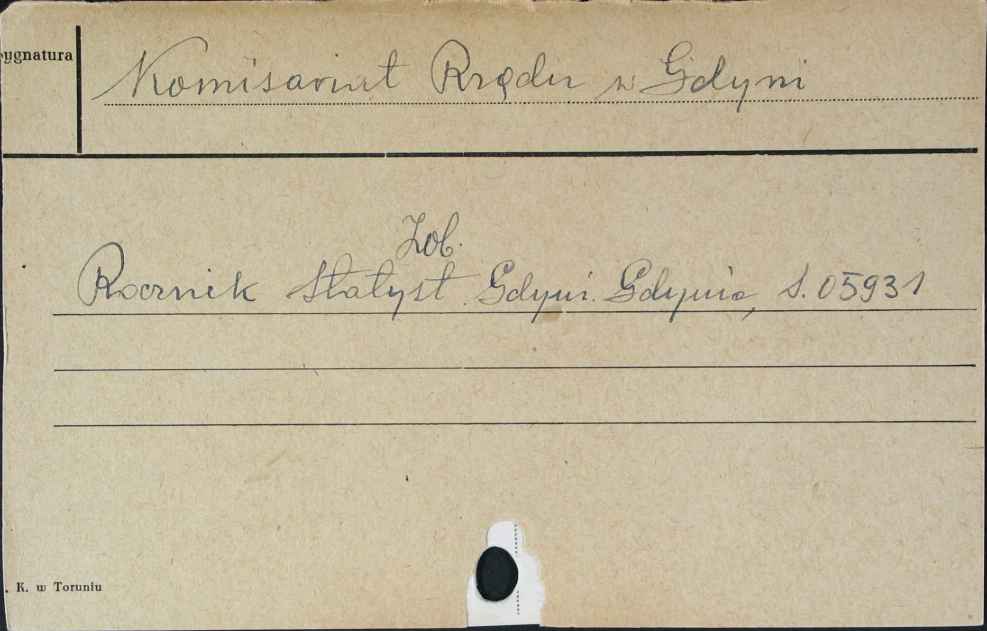 ygnatura
Komisariat Rządu w Gdyni
Zob.
Rocznik Statyst. Gdyni. Gdynia, S. 05931
. K. w Toruniu